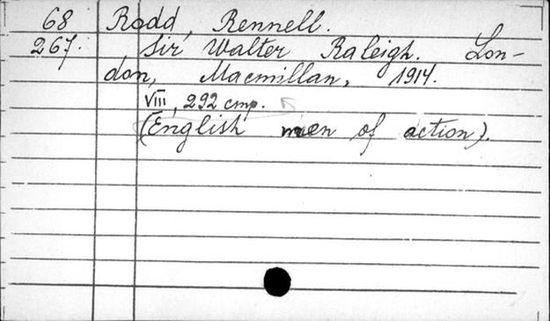 68 Rodd, Rennell.
267. Sir Walter Raleigh. Lon-
don, Macmillan, 1914.
VIII, 292 cmp.
(English men of action).